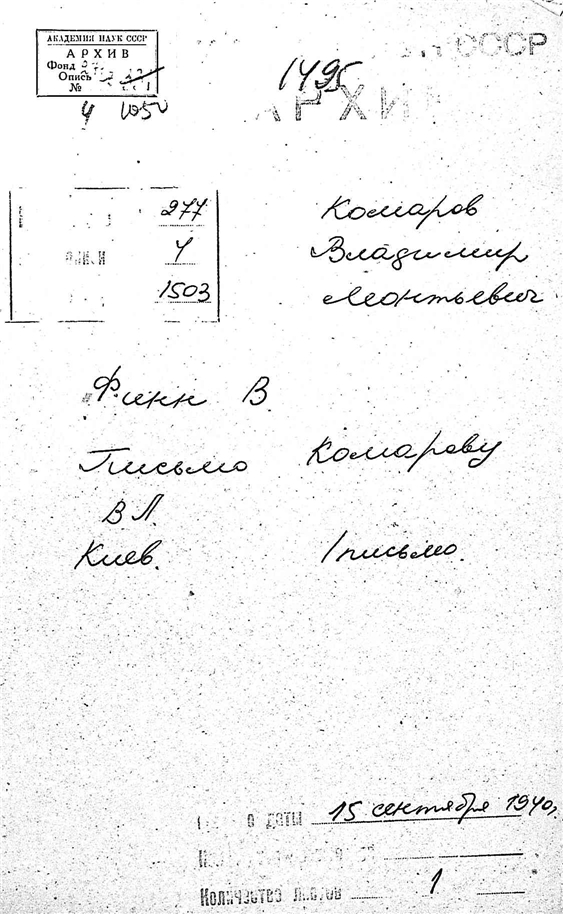 АКАДЕМИЯ НАУК СССР
АРХИВ
Фонд
Опись
№
4 1050
1495
СССР
АРХИВ
277
описи 4
1503
Комаров
Владимир
Леонтьевич
Финн В
Письмо Комарову
В Л.
Киев. 1 письмо.
даты 15 сентября 1940г.
Количество листов 1